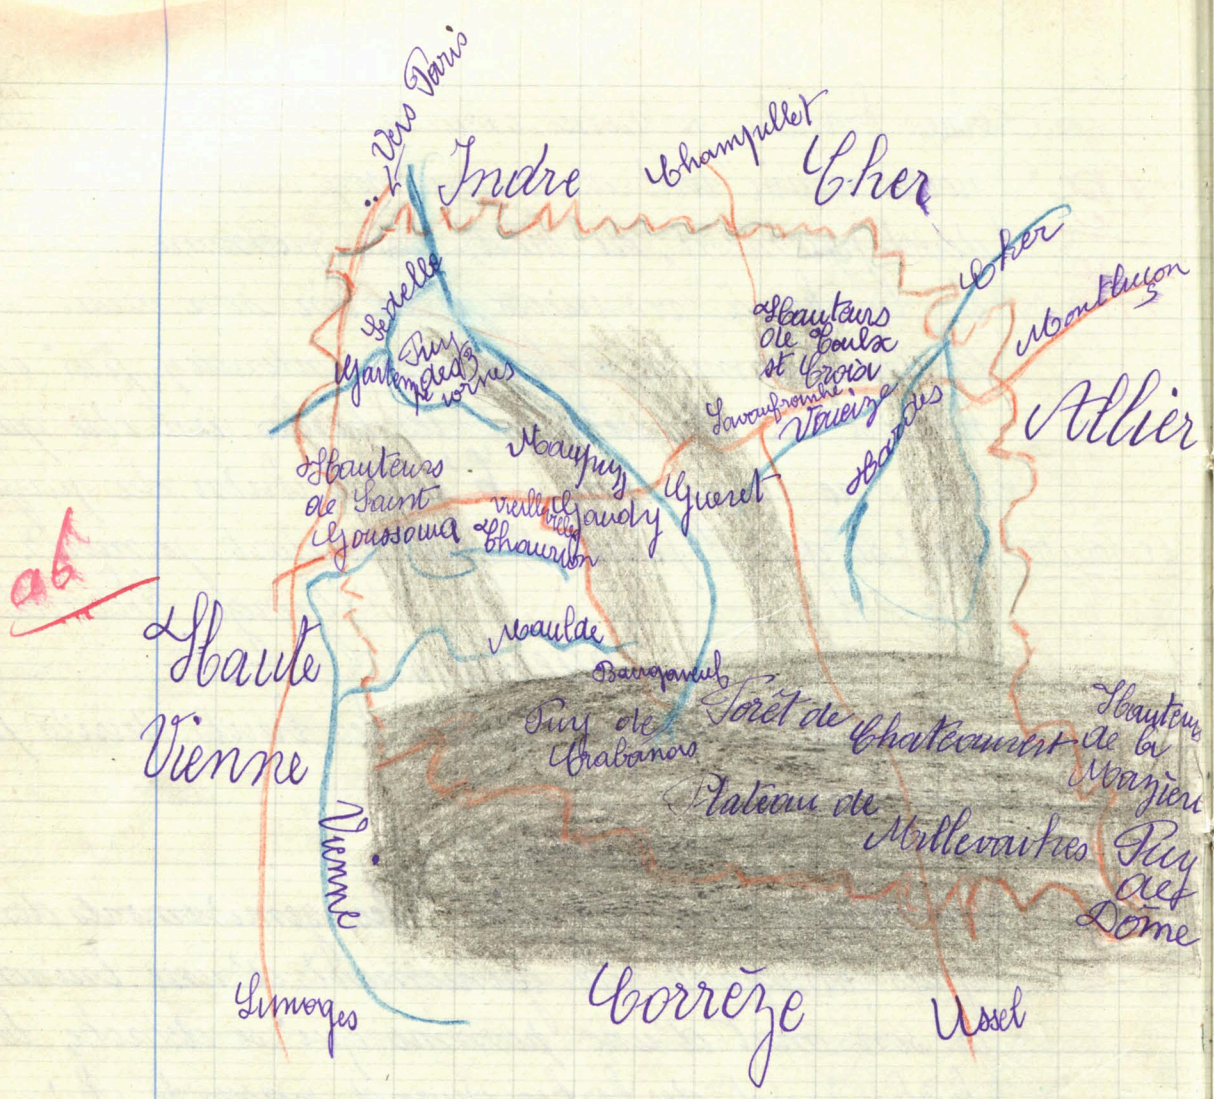 Vers Paris
Indre
Champillet
Cher
Cher
Montluçon
Sedelle
Puy
des 3
cornes
Gartempe
Hauteurs
de Toulx
st Croix
Lavaufranche
Voueize
Tardes
Allier
Maupuy
Hauteurs
de Saint
Goussaud
Vieilleville
Gaudy
Gueret
Thaurion
ab
Haute
Vienne
Maulde
Bourganeuf
Puy de
Crabanas
Forêt de
Chateauvert
Hauteurs
de la
Mazière
Plateau de
Millevaches
Puy
de
Dôme
Vienne
Limoges
Corrèze
Ussel